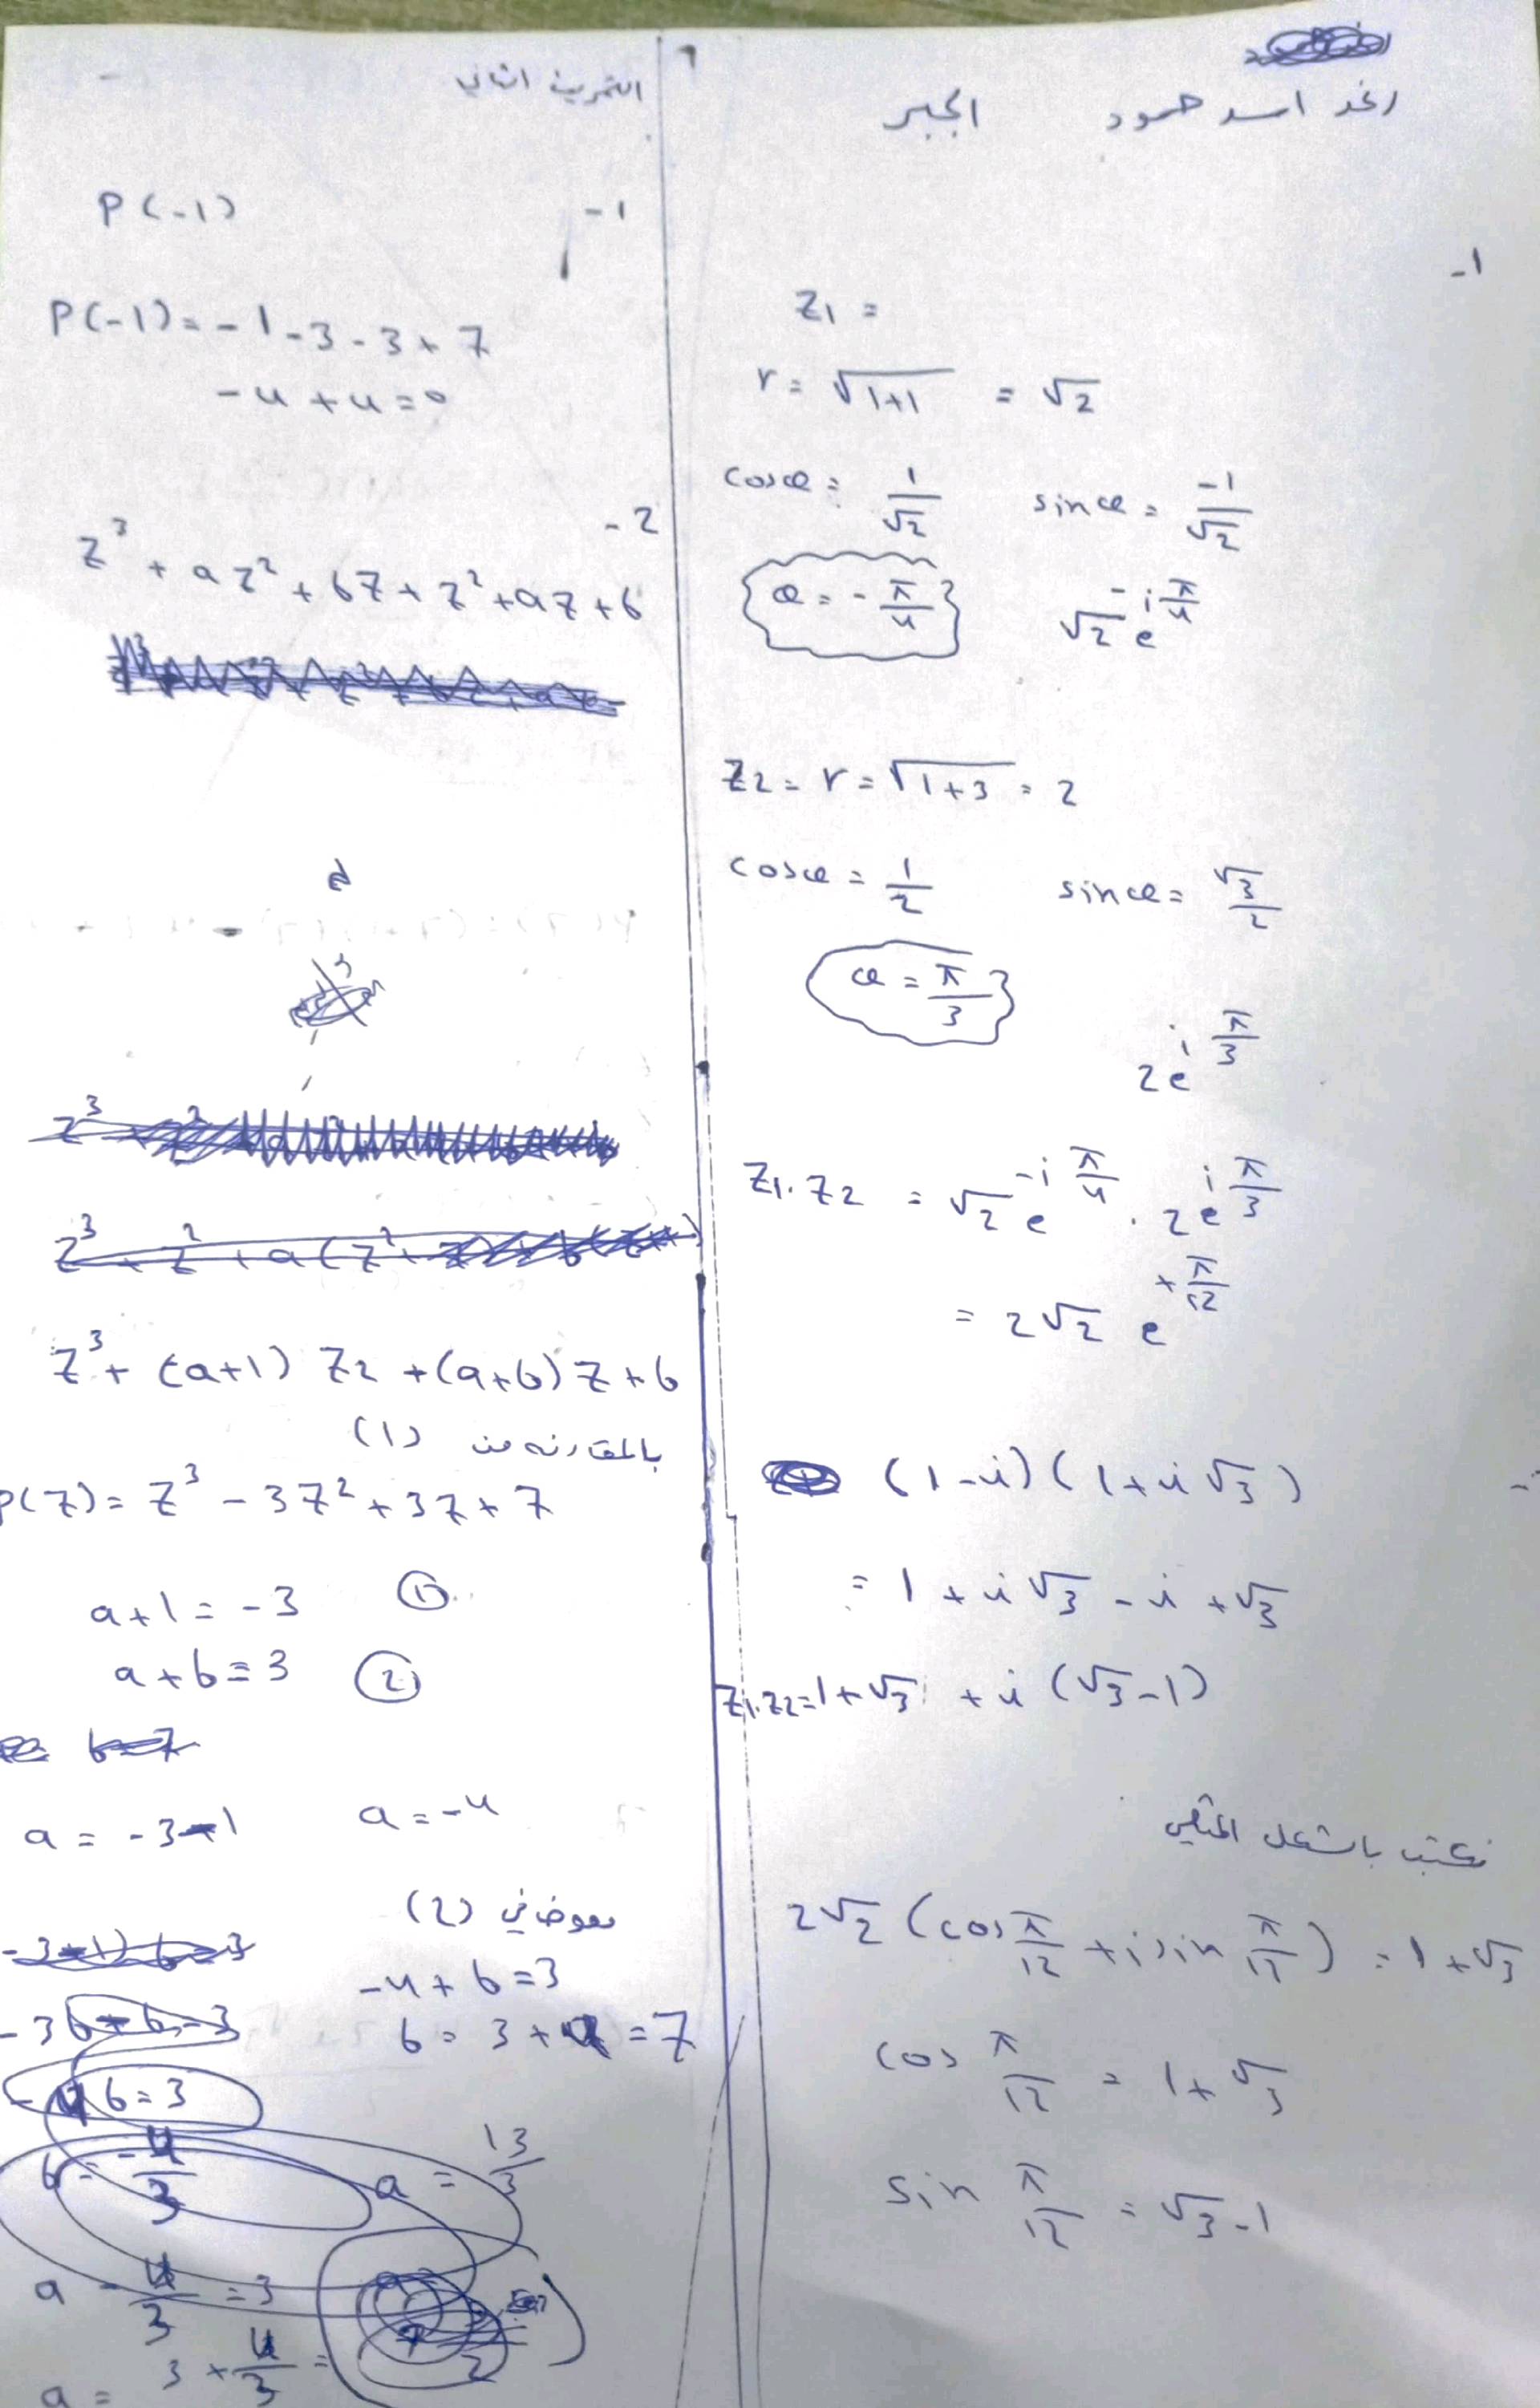 رغد اسد حمود الجبر
-1
Z1 =
r = √1+1 = √2
cosθ = 1/√2 sinθ = -1/√2
θ = -π/4 √2 e^-iπ/4
Z2 = r = √1+3 = 2
cosθ = 1/2 sinθ = √3/2
θ = π/3
2e^iπ/3
Z1.Z2 = √2 e^-iπ/4 . 2e^iπ/3
= 2√2 e^+π/12
(1-i)(1+i√3)
= 1+i√3-i+√3
Z1.Z2=1+√3 +i(√3-1)
نكتب بالشكل المثلثي
2√2 (cos π/12 + i sin π/12) = 1+√3
cos π/12 = 1+√3
sin π/12 = √3-1
التمرين الثاني
P(-1) -1
P(-1) = -1-3-3+7
-4+4=0
-2
Z³+aZ²+bZ+Z²+aZ+b
Z³+(a+1)Z2+(a+b)Z+b
بالمقارنه من (1)
P(Z) = Z³-3Z²+3Z+7
a+1=-3 ①
a+b=3 ②
a = -3-1 a=-4
نعوض في (2)
-4+b=3
b = 3+4 = 7
-4b=3
b = -4/3 a = 13/3
a - 4/3 = 3
a = 3 + 4/3 =